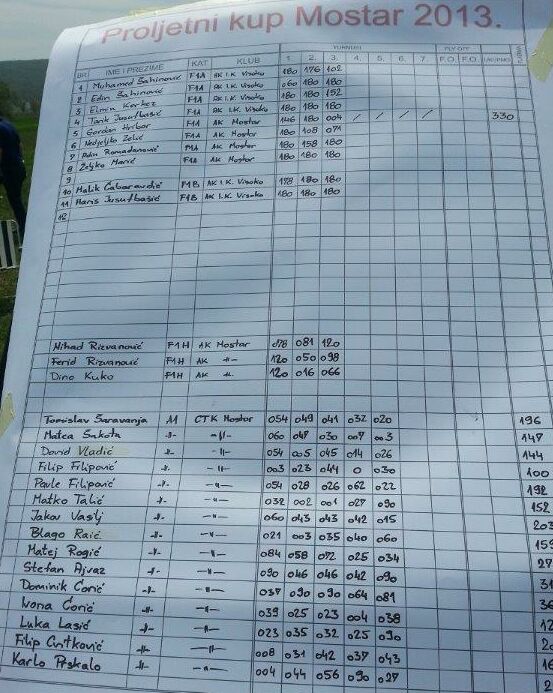 Proljetni kup Mostar 2013.
TURNUSI FLY OFF
BR IME I PREZIME KAT KLUB 1. 2. 3. 4. 5. 6. 7. F.O. F.O.
1 Muhamed Šahinović F1A AK I.K. Visoko 180 176 102
2 Edin Šahinović F1A AK I.K. Visoko 060 180 180
3 Elmin Kerkez F1A AK I.K. Visoko 180 180 152
4 Tarik Jusufbašić F1A AK I.K. Visoko 180 180 180
5 Gordan Hribar F1A AK Mostar 146 180 004 / / / / 330
6 Nedjeljko Zelić F1A AK Mostar 180 108 071
7 Adin Ramadanović F1A AK Mostar 180 158 180
8 Željko Marić F1A AK Mostar 180 180 180
9
10 Malik Čabaravdić F1B AK I.K. Visoko 178 180 180
11 Haris Jusufbašić F1B AK I.K. Visoko 180 180 180
12
Nihad Rizvanović F1H AK Mostar 078 081 120
Ferid Rizvanović F1H AK -"- 120 050 098
Dino Kuko F1H AK -"- 120 016 066
Tomislav Šaravanja A1 CTK Mostar 054 049 041 032 020 196
Matea Šakota -"- -"- 060 047 030 007 003 147
David Vladić -"- -"- 054 005 045 014 026 144
Filip Filipović -"- -"- 003 023 044 0 030 100
Pavle Filipović -"- -"- 054 028 026 062 022 192
Matko Talić -"- -"- 032 002 001 027 090 152
Jakov Vasilj -"- -"- 060 043 043 042 015 203
Blago Raič -"- -"- 021 003 035 040 060 159
Matej Rogić -"- -"- 084 058 072 025 034 27
Stefan Ajvaz -"- -"- 090 046 046 042 090 31
Dominik Ćorić -"- -"- 037 090 090 064 081 36
Ivona Ćorić -"- -"- 039 025 023 004 038 12
Luka Lasić -"- -"- 023 035 032 025 090 20
Filip Cvitković -"- -"- 008 031 042 037 043 16
Karlo Prskalo -"- -"- 004 044 056 090 027 2